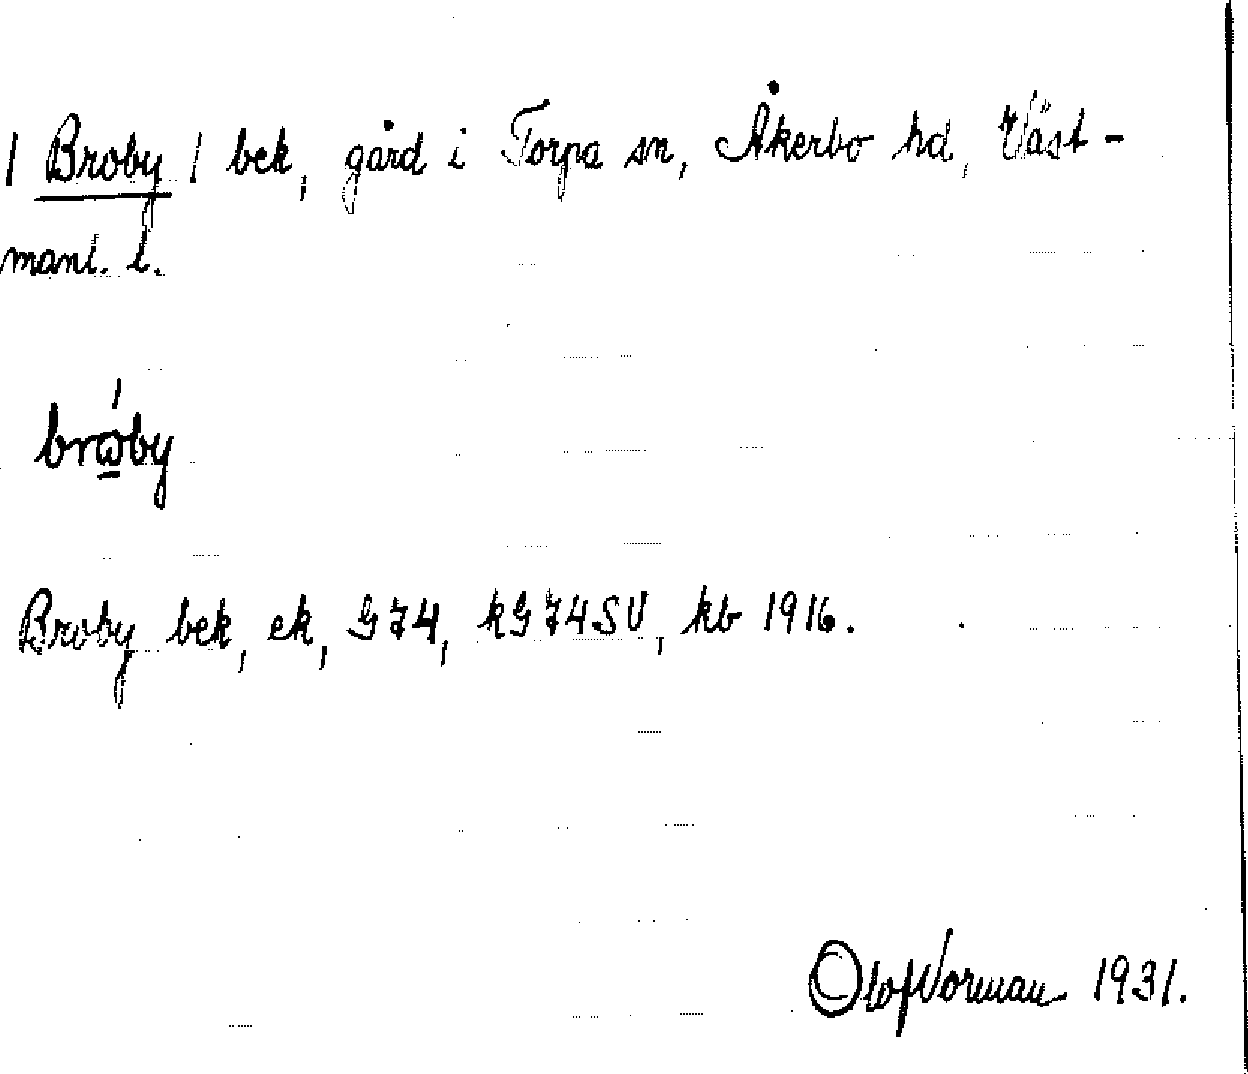 / Broby / bek, gård i Torpa sn, Åkerbo hd, Väst-
manl. l.
brώ̲by
Broby bek, ek, G74, kG74SV, kb 1916.
Olof Norman 1931.